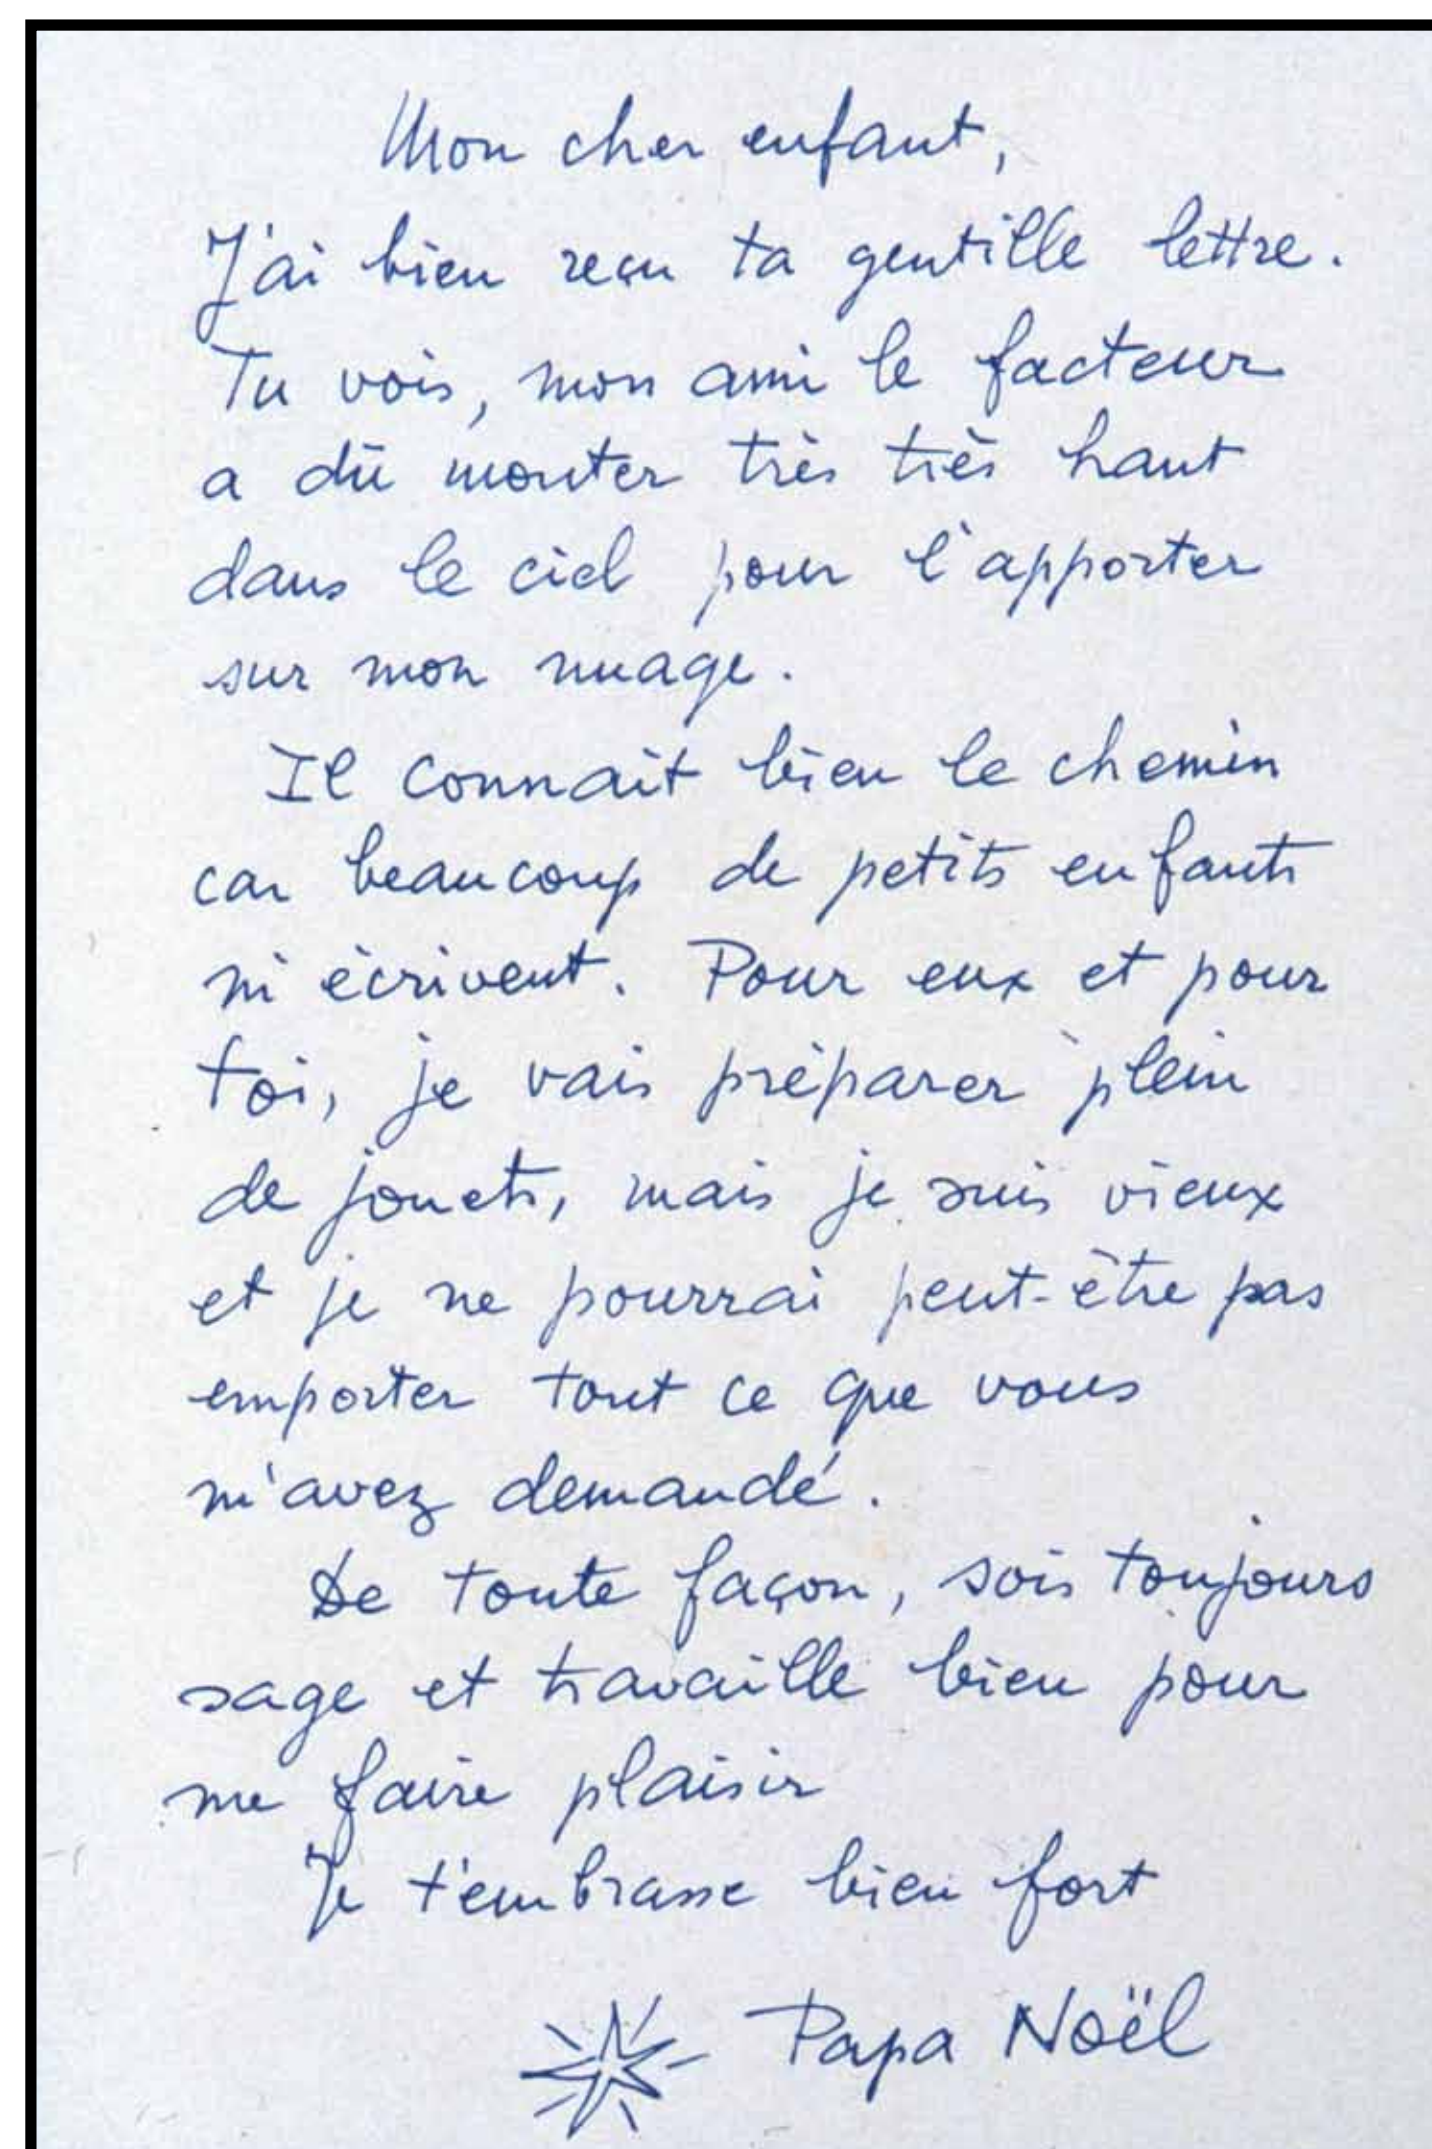 Mon cher enfant,
J'ai bien reçu ta gentille lettre.
Tu vois, mon ami le facteur
a dû monter très très haut
dans le ciel pour l'apporter
sur mon nuage.
Il connaît bien le chemin
car beaucoup de petits enfants
m'écrivent. Pour eux et pour
toi, je vais préparer plein
de jouets, mais je suis vieux
et je ne pourrai peut-être pas
emporter tout ce que vous
m'avez demandé.
De toute façon, sois toujours
sage et travaille bien pour
me faire plaisir
Je t'embrasse bien fort
Papa Noël